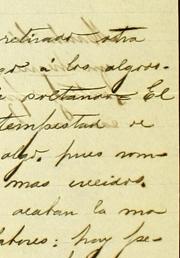 retirado otra
á los algodo-
El
tempestad de
algo. pues rom
mas crecidos.
acaban la ma
labores: hay pe-